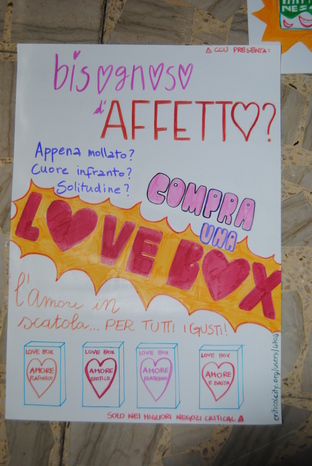 CCU PRESENTA:
bisognoso
d'AFFETTO?
Appena mollato?
Cuore infranto?
Solitudine?
COMPRA
UNA
LOVE BOX
l'Amore in
scatola... PER TUTTI I GUSTI!
LOVE BOX
AMORE
LOVE BOX
AMORE
LOVE BOX
AMORE
LOVE BOX
AMORE
E BASTA
SOLO NEI MIGLIORI NEGOZI CRITICAL